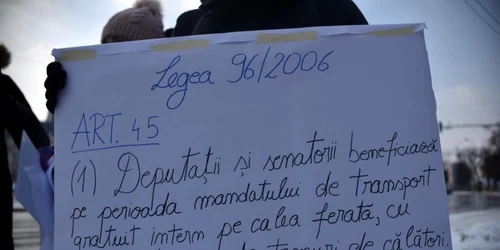 Legea 96/2006
ART. 45
(1) Deputații și senatorii beneficiază
pe perioada mandatului de transport
gratuit intern pe calea ferată, cu
de călători.